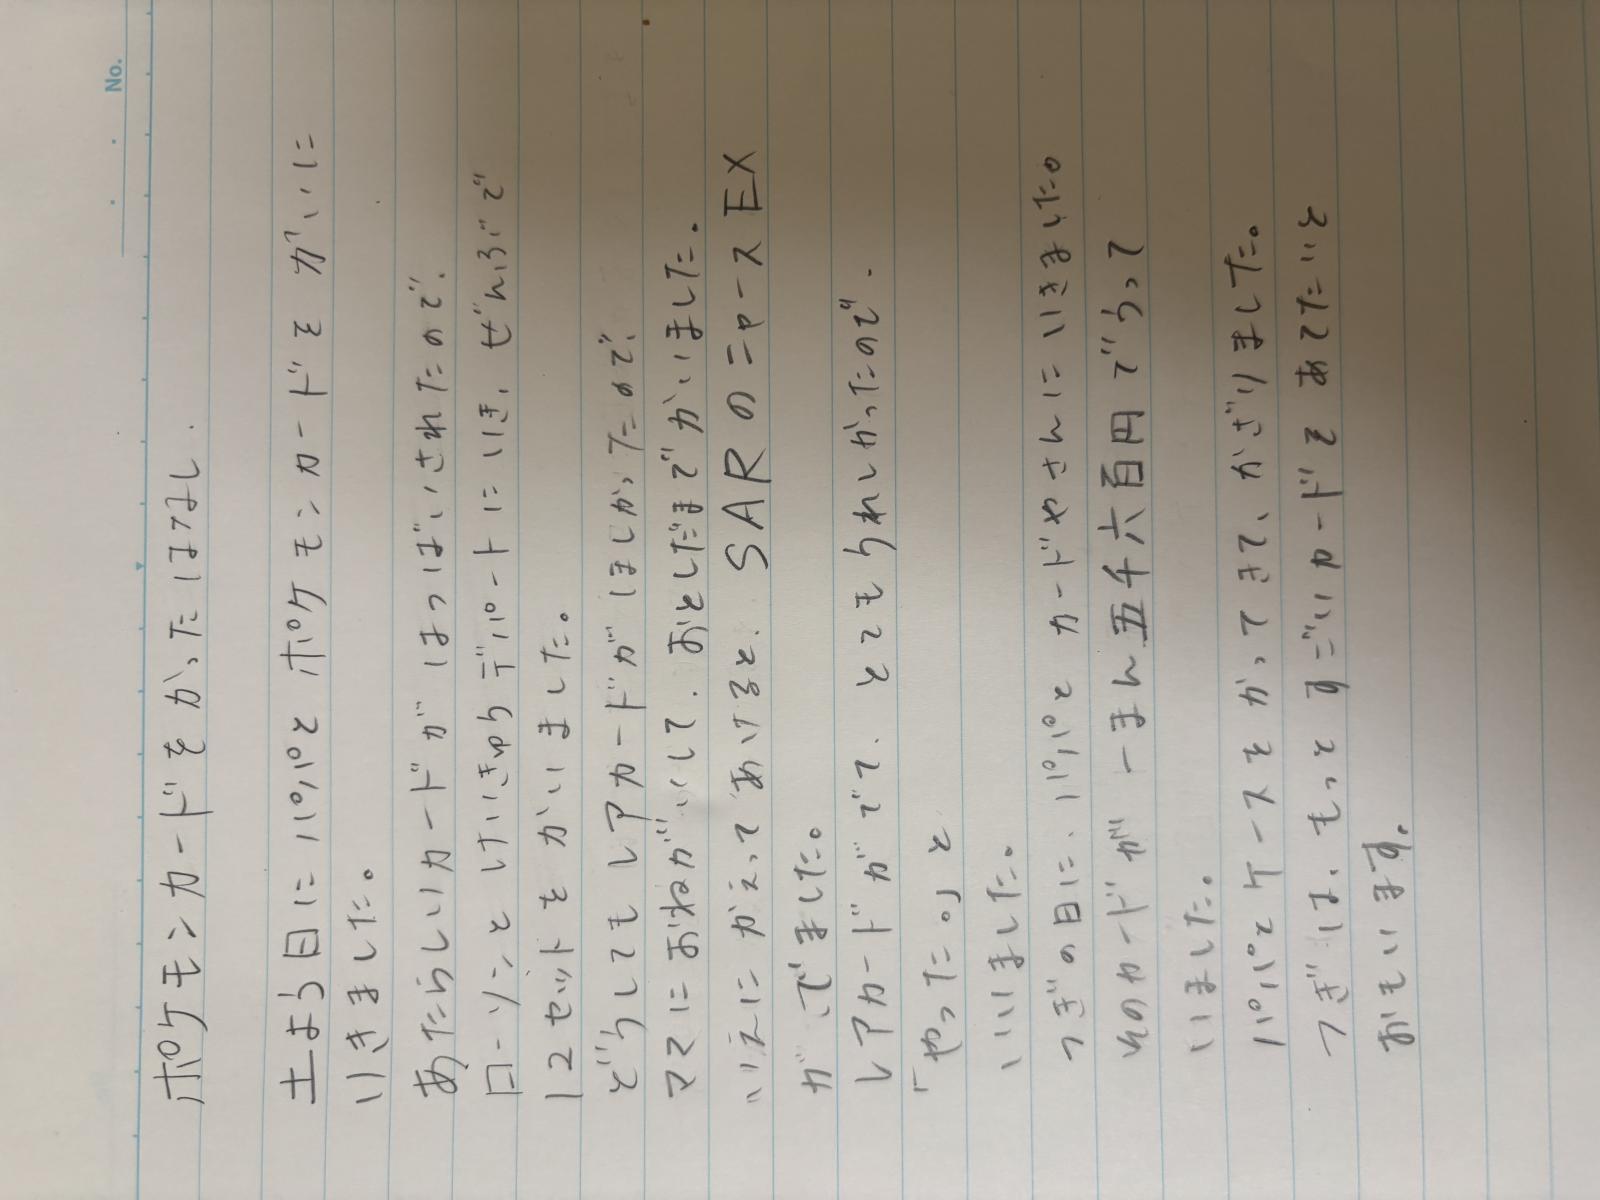 No.
ポケモンカードをかったはなし.
土よう日にパパとポケモンカードをかいに
いきました。
あたらしいカードがはっばいされたので、
ローソンとけいきゅうデパートにいき、ぜんぶで
12セットをかいました。
どうしてもレアカードがほしかったので、
ママにおねがいして、おとしだまでかいました。
いえにかえってあけると、SARのニャースEX
がでました。
レアカードがでて、とてもうれしかったので、
「やった。」と
いいました。
つぎの日に、パパとカードやさんにいきました。
そのカードが一まん五千六百円でうって
いました。
パパとケースをかってきて、かざりました。
つぎは、もっとすごいカードをあてたいと
おもいます。